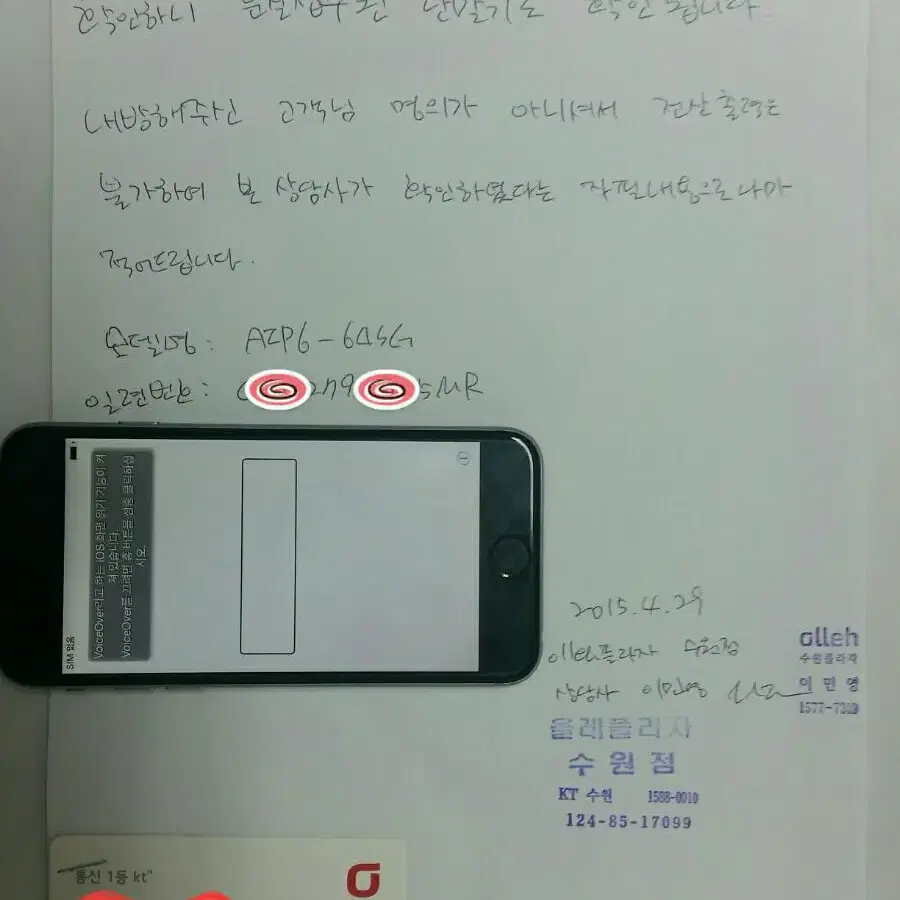 확인하니 분실접수된 단말기로 확인 됩니다.
내방해주신 고객님 명의가 아니셔서 전산출력은
불가하여 본 상담사가 확인하였다는 자필내용으로나마
적어드립니다.
모델명: AIP6-64SG
일련번호: 279 5MR
SIM 없음
VoiceOver라고 하는 iOS 화면 읽기 기능이 켜
져 있습니다.
VoiceOver를 끄려면 홈 버튼을 세 번 클릭하십
시오.
2015.4.29
올레플라자 수원점
상담사 이민영
olleh
수원플라자
이 민 영
1577-
올레플라자
수원점
KT 수원 1588-0010
124-85-17099
"통신 1등 kt"